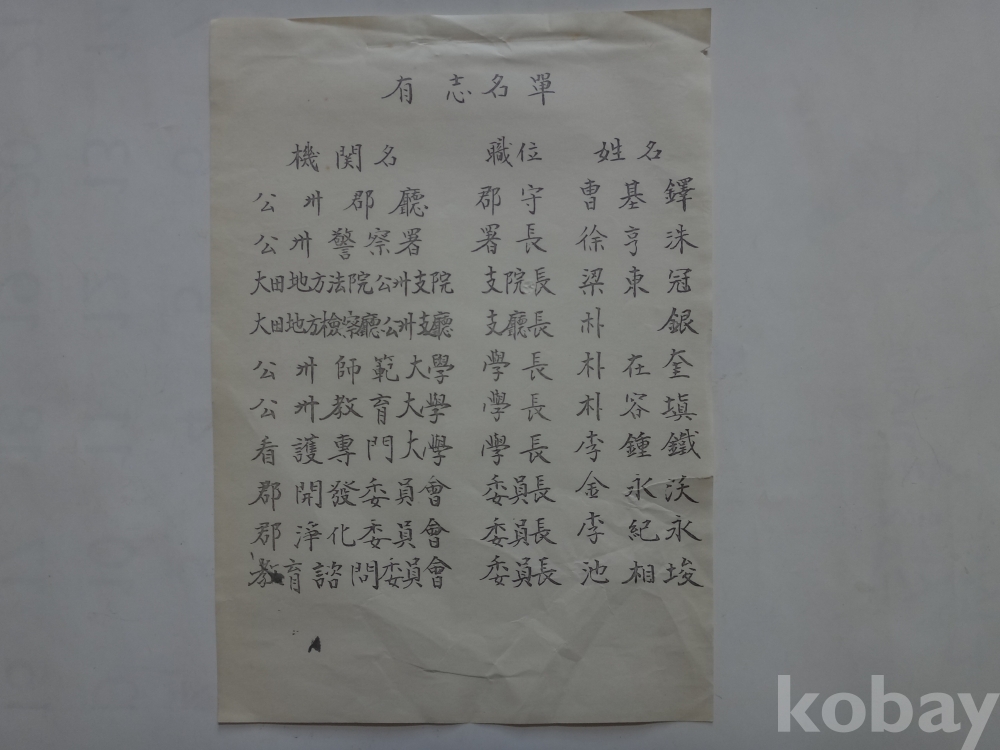 有志名單
機関名 職位 姓名
公州郡廳 郡守 曹基鐸
公州警察署 署長 徐亨洙
大田地方法院公州支院 支院長 梁東冠
大田地方檢察廳公州支廳 支廳長 朴 銀
公州師範大學 學長 朴在奎
公州教育大學 學長 朴容塡
看護專門大學 學長 李鍾鐵
郡開發委員會 委員長 金永沃
郡淨化委員會 委員長 李紀永
教育諮問委員會 委員長 池相埈
kobay